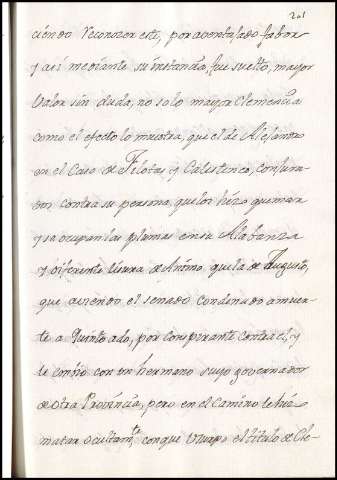 201
ciendo Reconozer este, por aventajado fabor
y asi mediante su instancia, fue suelto, mayor
Valor sin duda, no solo mayor Clemencia
como el efecto lo muestra, que el de Alejandro
en el Caso de Filotas y Calistenes, conjura-
dos contra su persona, que los hizo quemar
y se ocupan las plumas en su Alabanza
y diferente de Animo, que la de Augusto,
que aviendo el senado Condenado a muer-
te a Quinto ado, por conspirante contra el, y
le con un hermano suyo governador
de otra Provincia, pero en el Camino le hizo
matar ocultamte con que Usurpo el titulo de Cle-